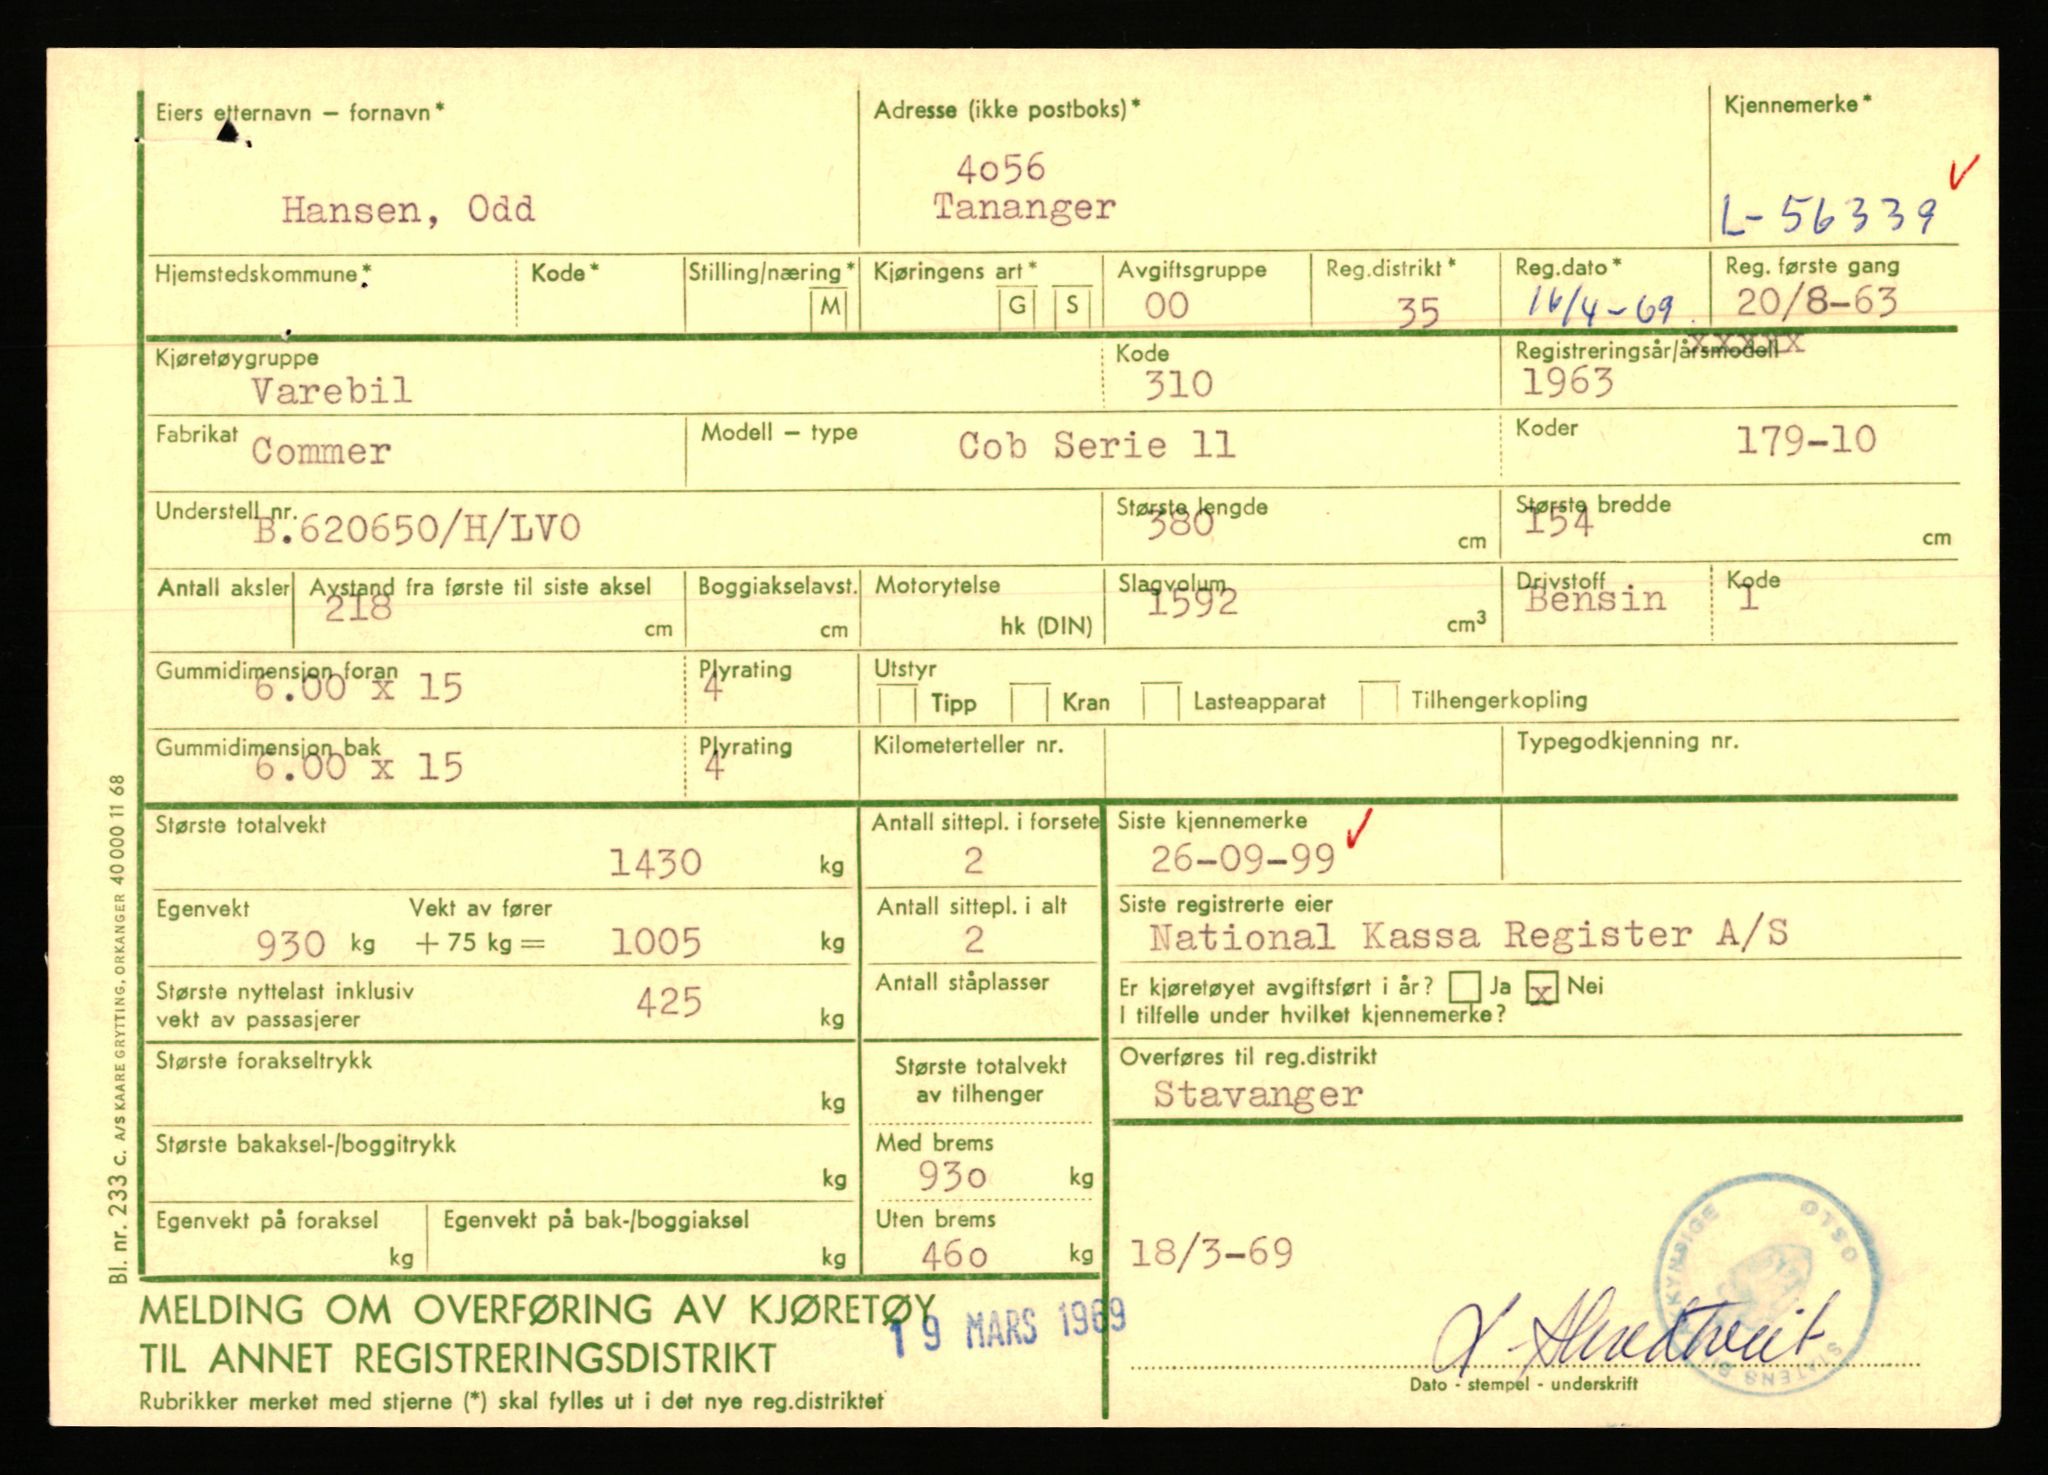 Eiers etternavn – fornavn*
Hansen, Odd
Adresse (ikke postboks)*
4o56
Tananger
Kjennemerke*
L-56339
Hjemstedskommune*
Kode*
Stilling/næring*
M
Kjøringens art*
G S
Avgiftsgruppe
00
Reg.distrikt*
35
Reg.dato*
16/4-69
Reg. første gang
20/8-63
Kjøretøygruppe
Varebil
Kode
310
Registreringsår/årsmodell
xxxxx
1963
Fabrikat
Commer
Modell – type
Cob Serie 11
Koder
179-10
Understell nr.
B.620650/H/LVO
Største lengde
380 cm
Største bredde
154 cm
Antall aksler
Avstand fra første til siste aksel
218 cm
Boggiakselavst.
cm
Motorytelse
hk (DIN)
Slagvolum
1592 cm3
Drivstoff
Bensin
Kode
1
Gummidimensjon foran
6.00 x 15
Plyrating
4
Utstyr
Tipp Kran Lasteapparat Tilhengerkopling
Gummidimensjon bak
6.00 x 15
Plyrating
4
Kilometerteller nr.
Typegodkjenning nr.
Største totalvekt
1430 kg
Antall sittepl. i forsete
2
Siste kjennemerke
26-09-99
Egenvekt
930 kg
Vekt av fører
+ 75 kg = 1005 kg
Antall sittepl. i alt
2
Siste registrerte eier
National Kassa Register A/S
Største nyttelast inklusiv
vekt av passasjerer
425 kg
Antall ståplasser
Er kjøretøyet avgiftsført i år? Ja x Nei
I tilfelle under hvilket kjennemerke?
Største forakseltrykk
kg
Største totalvekt
av tilhenger
Overføres til reg.distrikt
Stavanger
Største bakaksel-/boggitrykk
kg
Med brems
93o kg
Egenvekt på foraksel
kg
Egenvekt på bak-/boggiaksel
kg
Uten brems
46o kg
18/3-69
OSLO
STATENS
MELDING OM OVERFØRING AV KJØRETØY
TIL ANNET REGISTRERINGSDISTRIKT
19 MARS 1969
Rubrikker merket med stjerne (*) skal fylles ut i det nye reg.distriktet
Dato - stempel - underskrift
Bl. nr. 233 c. A/S KAARE GRYTTING, ORKANGER 40 000 11 68